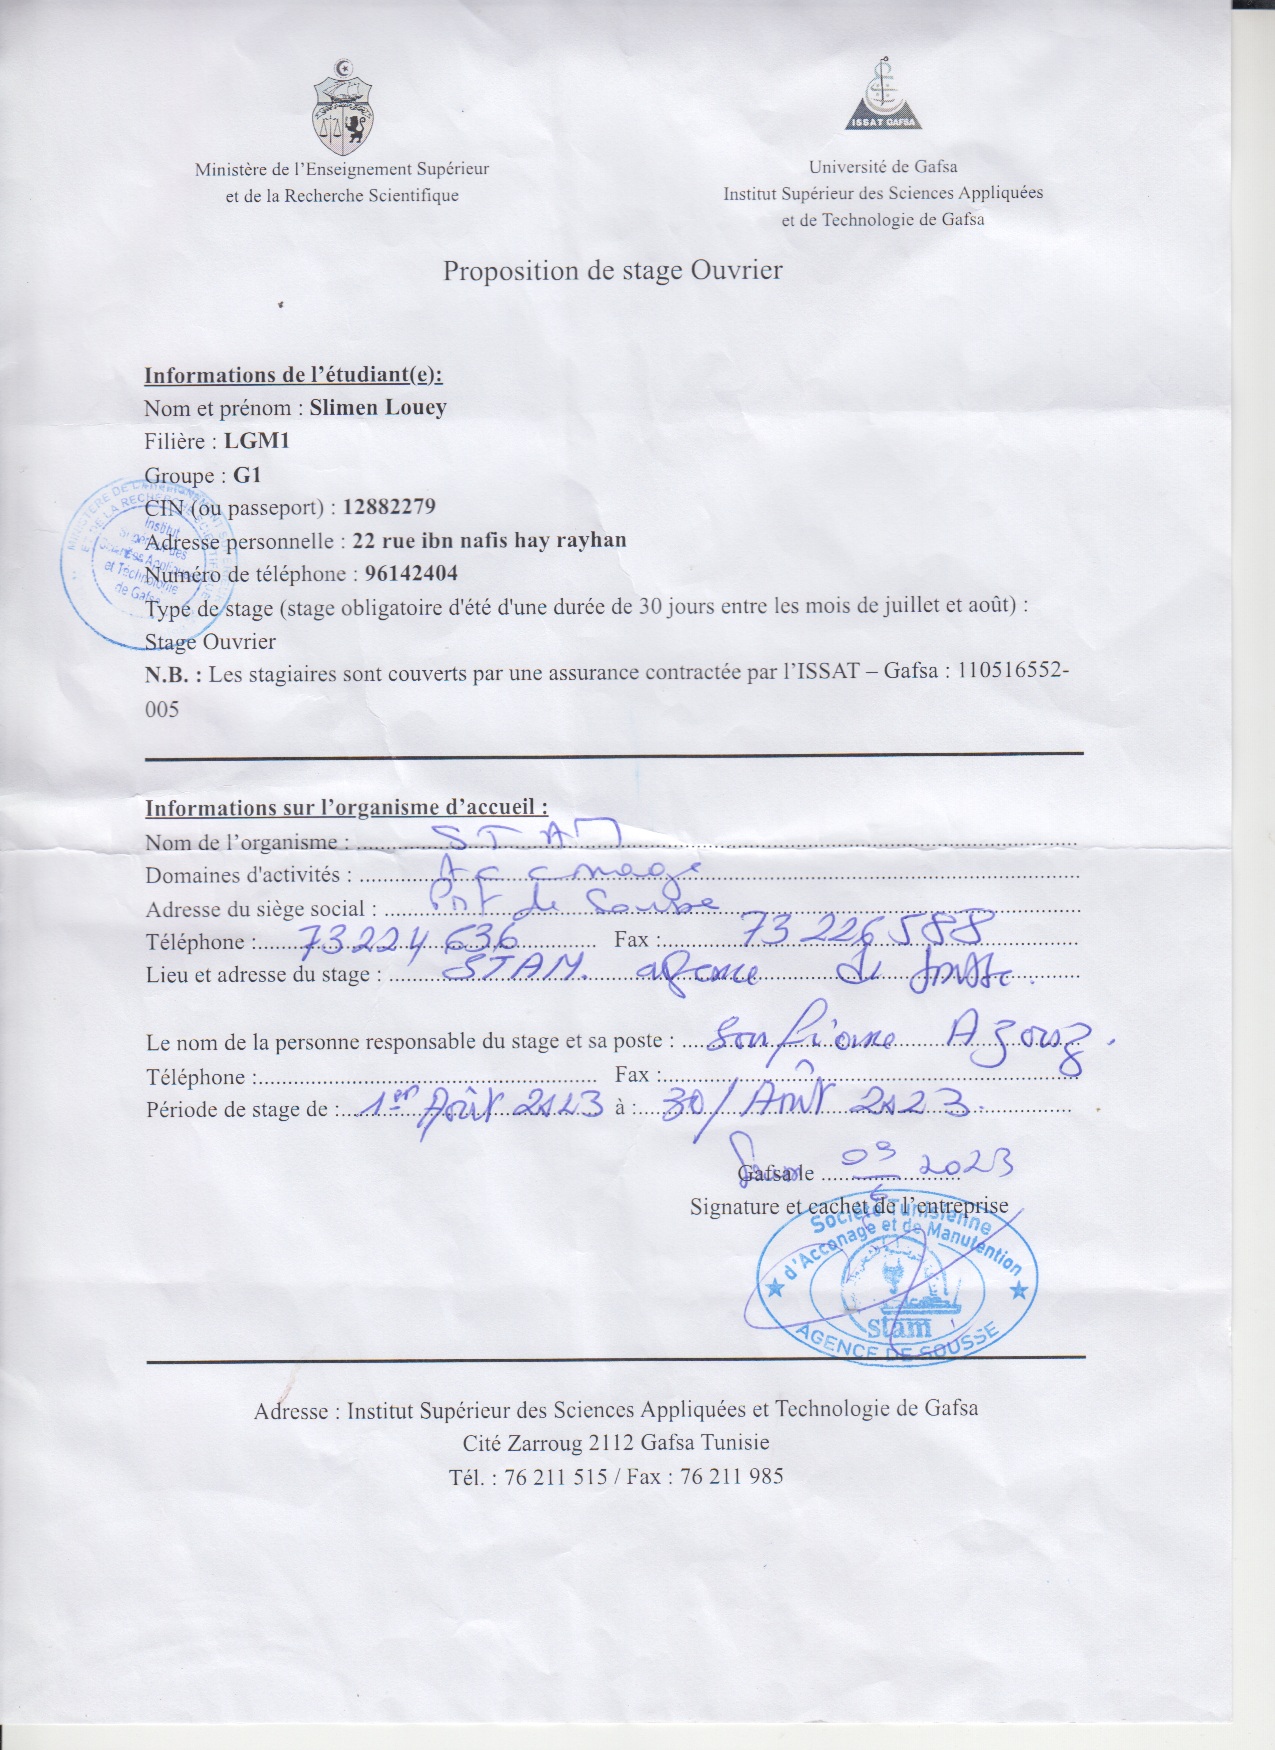 ISSAT GAFSA
Ministère de l'Enseignement Supérieur
et de la Recherche Scientifique
Université de Gafsa
Institut Supérieur des Sciences Appliquées
et de Technologie de Gafsa
Proposition de stage Ouvrier
Informations de l'étudiant(e):
Nom et prénom : Slimen Louey
Filière : LGM1
Groupe : G1
CIN (ou passeport) : 12882279
Adresse personnelle : 22 rue ibn nafis hay rayhan
Numéro de téléphone : 96142404
Type de stage (stage obligatoire d'été d'une durée de 30 jours entre les mois de juillet et août) :
Stage Ouvrier
N.B. : Les stagiaires sont couverts par une assurance contractée par l'ISSAT – Gafsa : 110516552-
005
Institut
Supérieur des
Sciences Appliquées
et Technologie
de Gafsa
Informations sur l'organisme d'accueil :
Nom de l'organisme : STAM
Domaines d'activités : Acconage
Adresse du siège social : Port de Sousse
Téléphone : 73224636 Fax : 73226588
Lieu et adresse du stage : STAM. agence de Sousse.
Le nom de la personne responsable du stage et sa poste : Azouz.
Téléphone : Fax :
Période de stage de : 1er Août 2023 à : 30/Août 2023.
Gafsa le 09 2023
Signature et cachet de l'entreprise
Société Tunisienne
d'Acconage et de Manutention
stam
AGENCE DE SOUSSE
Adresse : Institut Supérieur des Sciences Appliquées et Technologie de Gafsa
Cité Zarroug 2112 Gafsa Tunisie
Tél. : 76 211 515 / Fax : 76 211 985